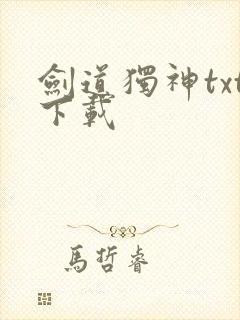 劍道獨神txt
下載
馬哲睿